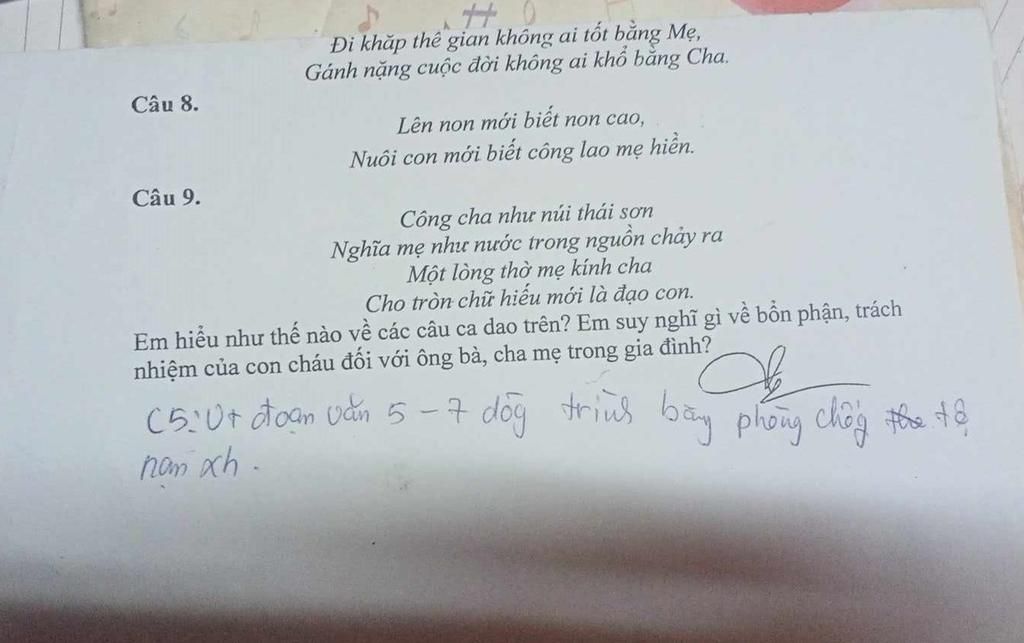 Đi khắp thế gian không ai tốt bằng Mẹ,
Gánh nặng cuộc đời không ai khổ bằng Cha.
Câu 8.
Lên non mới biết non cao,
Nuôi con mới biết công lao mẹ hiền.
Câu 9.
Công cha như núi thái sơn
Nghĩa mẹ như nước trong nguồn chảy ra
Một lòng thờ mẹ kính cha
Cho tròn chữ hiếu mới là đạo con.
Em hiểu như thế nào về các câu ca dao trên? Em suy nghĩ gì về bổn phận, trách
nhiệm của con cháu đối với ông bà, cha mẹ trong gia đình?
C5: Vt đoạn văn 5 - 7 dòg trình bày phòng chốg tệ
nạn xh.